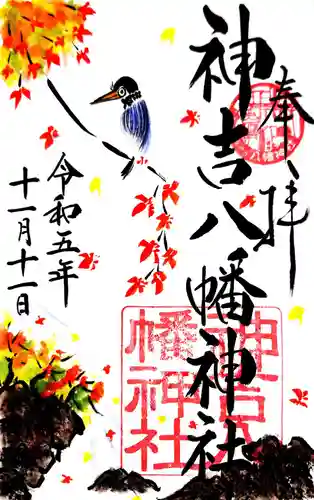 奉拝
神吉八幡神社
令和五年
十一月十一日
神吉八
幡神社